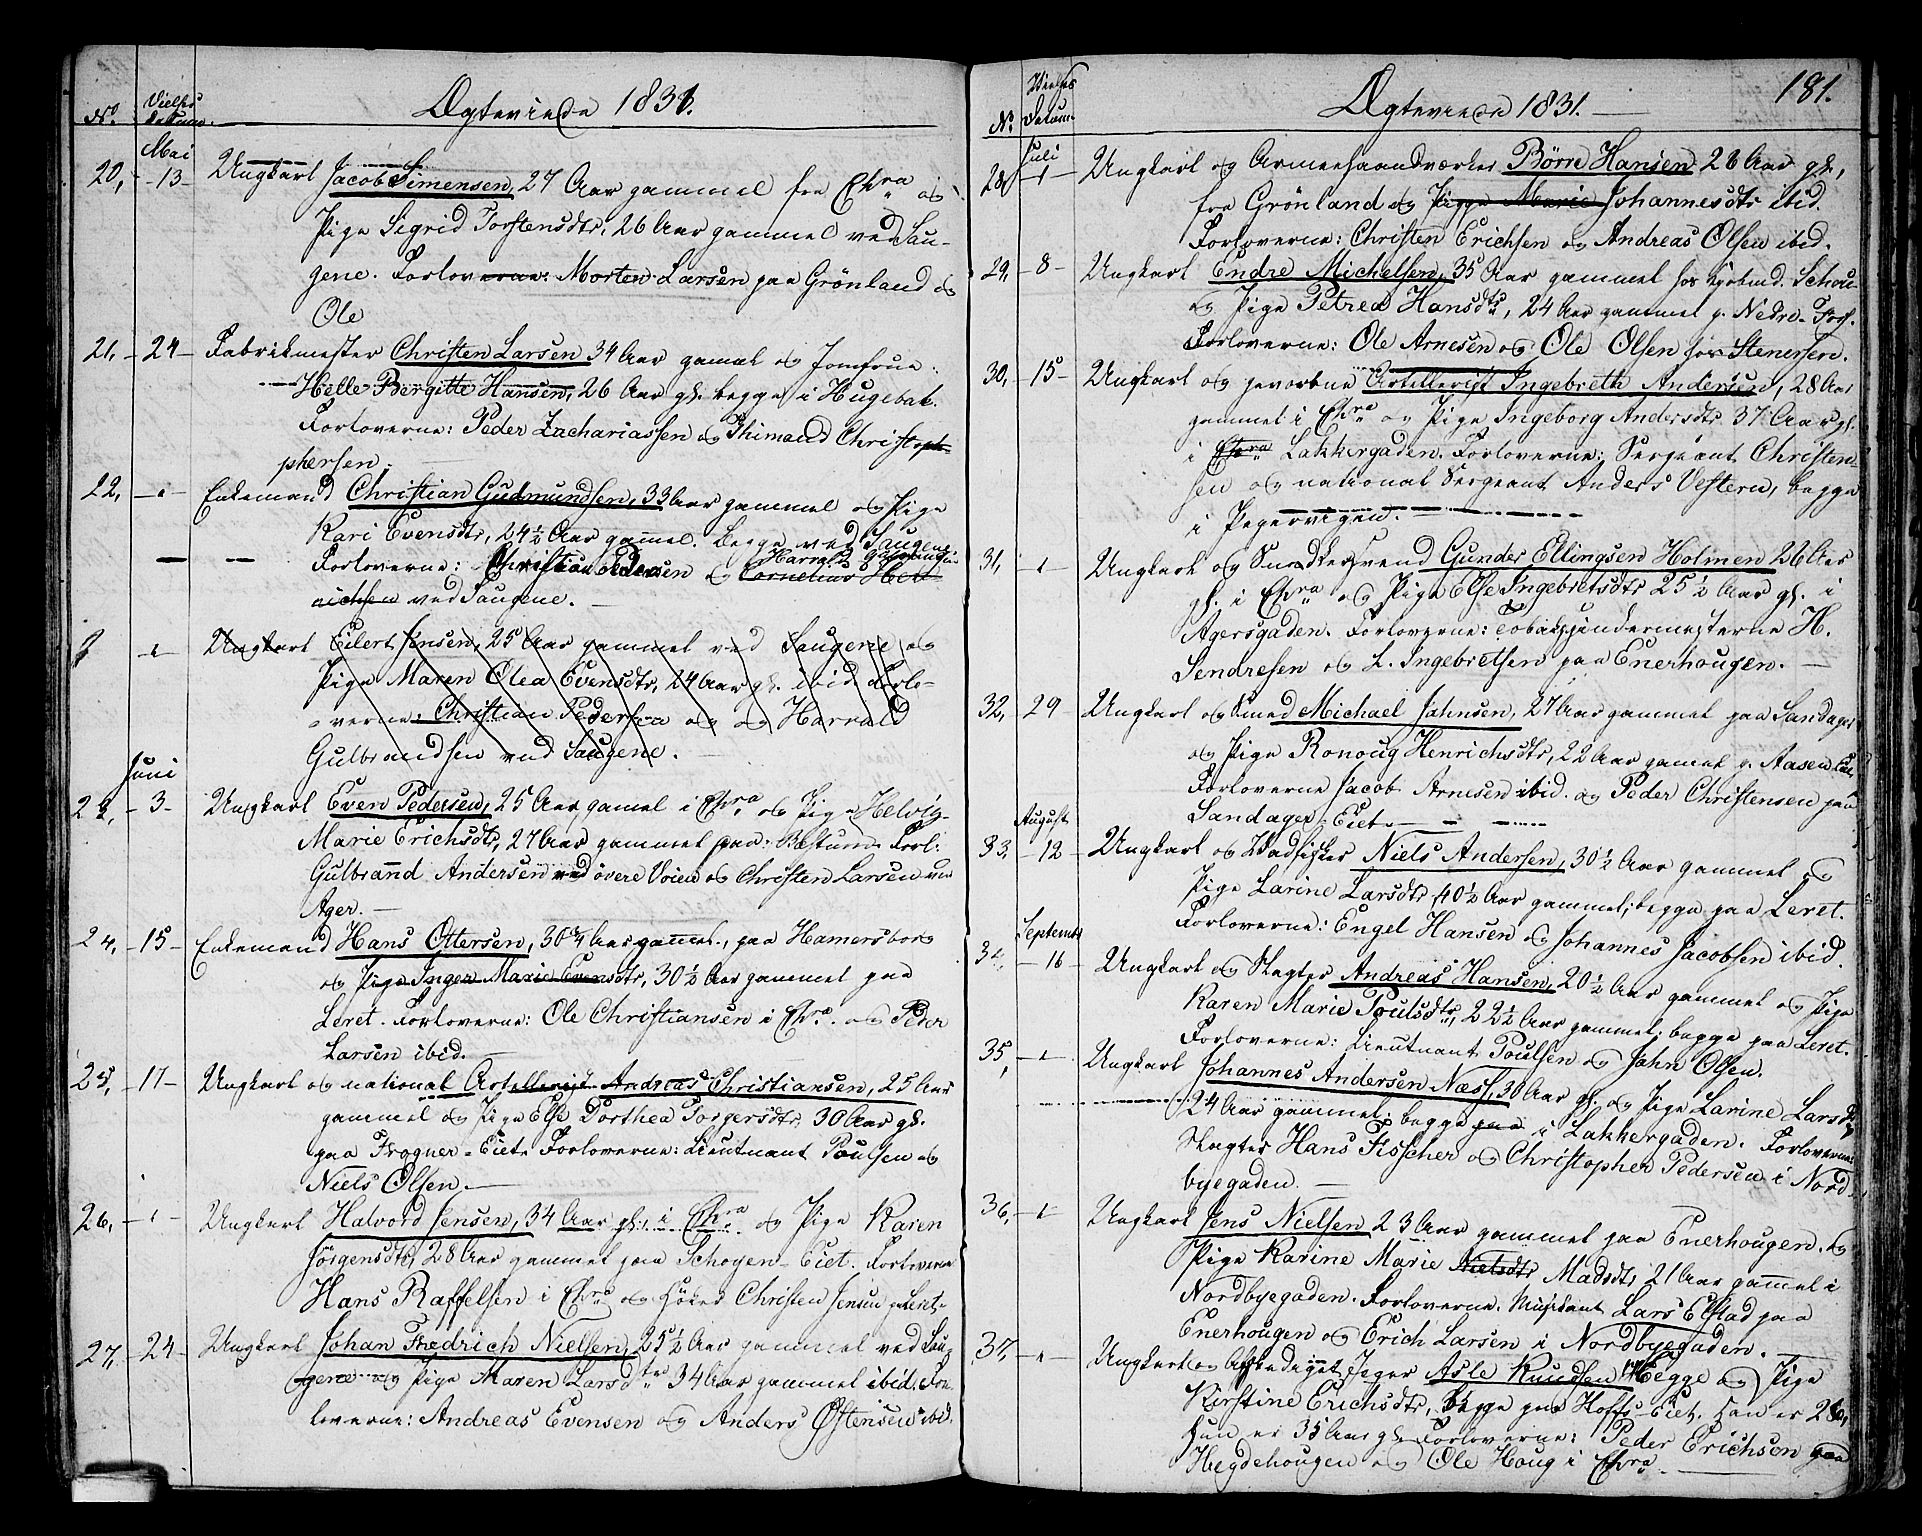 Ægteviede 1831.
No. Vielses Datum.
Mai
20, -13- Ungkarl Jacob Simensen, 27 Aar gammel fra Chra og
Pige Sigrid Torstensdtr, 26 Aar gammel ved Sau-
gene. Forloverne: Morten Larsen paa Grönland og
Ole
21, -24- Fabrikmester Christen Larsen 34 Aar gamel og Jomfrue
Helle Bergitte Hansen, 26 Aar gl. begge i Hugebak.
Forloverne: Peder Zachariassen og Thimand Christoph-
phersen.
22, -"- Enkemand Christian Gudmundsen, 33 Aar gammel og Pige
Kari Evensdtr, 24½ Aar gammel. begge ved Saugene
Forloverne: Christian Pedersen og Cornelius Hen-
richsen ved Saugene.
-"- Ungkarl Eilert Jensen, 25 Aar gammel ved Saugene og
Pige Maren Olea Evensdtr, 24 Aar gl. ibid Forlo-
verne: Christian Pedersen og og Harrald
Gulbrandsen ved Saugene.
Juni
23, -3- Ungkarl Even Pedersen, 25 Aar gamel i Chra og Pige Helvig
Marie Erichsdtr, 27 Aar gammel paa Bæstum Forl:
Gulbrand Andersen ved övere Voien og Christen Larsen ved
Ager.
24, -15- Enkemand Hans Ottersen, 30¾ Aar gammel, paa Hamersborg
og Pige Inger Marie Evensdtr, 30½ Aar gammel paa
Leret. Forloverne: Ole Christiansen i Chra. og Peder
Larsen ibid.
25, -17- Ungkarl og national Artillerist Andreas Christiansen, 25 Aar
gammel og Pige Else Dorthea Torgersdtr, 30 Aar gl.
paa Frogner-Eiet Forloverne: Lieutnant Poulsen og
Niels Olsen.
26, -"- Ungkarl Halvord Jensen, 34 Aar gl. i Chra og Pige Karen
Jörgensdtr, 28 Aar gammel paa Schoyen-Eiet. Forloverne
Hans Raffelsen i Chra og Höker Christen Jensen p. Leret
27, -24- Ungkarl Johan Fredrich Nielsen, 25½ Aar gammel ved Sau-
gene og Pige Maren Larsdtr 34 Aar gammel ibid. For-
loverne: Andreas Evensen og Anders Östensen ibid.
181.
Ægteviede 1831.
No. Vielses Datum
Juli
28, -1- Ungkarl og Armeehaandværker Börre Hansen 28 Aar gl,
fra Grönland og Pigge Marie Johannesdtr ibid.
Forloverne: Christen Erichsen og Andreas Olsen ibid.
29, -8- Ungkarl Endre Michelsen, 35 Aar gammel hos Kjöbmd. Schou
og Pige Petrea Hansdtr, 24 Aar gammel p. Nedre-Fos.
Forloverne: Ole Arnesen og Ole Olsen hos Stenersen.
30, -15- Ungkarl og gevorbne Artillerist Ingebreth Andersen, 28 Aar
gammel i Chra og Pige Ingeborg Andersdtr 37 Aar gl.
i Chra Lakkergaden. Forloverne: Sergeant Christen-
sen og national Sergeant Anders Vestern, begge
i Pepervigen.
31, -"- Ungkarl og Snedkersvend Gunder Ellingsen Holmen 26 Aar
gl. i Chra og Pige Else Ingebretsdtr 25½ Aar gl. i
Agersgaden. Forloverne: Tobakspindermesterne H.
Sendresen og L. Ingebretsen paa Enerhougen.
32, 29 Ungkarl og Smed Michael Jahnsen, 27 Aar gammel paa Sandager
og Pige Ronoug Henrichsdtr, 22 Aar gammel p. Aasen Eiet,
Forloverne Jacob Arnesen ibid. og Peder Christensen paa
Sandager-Eiet
August
33, -12- Ungkarl og Vadfisker Niels Andersen, 30½ Aar gammel og
Pige Larine Larsdtr, 40½ Aar gammel; begge paa Leret.
Forloverne: Engel Hansen og Johannes Jacobsen ibid.
September
34, -16- Ungkarl og Slagter Andreas Hansen, 20½ Aar gammel og Pige
Karen Marie Poulsdtr, 22½ Aar gammel; begge paa Leret.
Forloverne: Lieutnant Poulsen og Jahn Olsen.
35, -"- Ungkarl Johannes Andersen Næss, 30 Aar gl. og Pige Larine Larsdtr
24 Aar gammel; begge paa i Lakkergaden. Forloverne
Slagter Hans Fisscher og Christopher Pedersen i Nord-
byegaden.
36, -"- Ungkarl Jens Nielsen 23 Aar gammel paa Enerhougen. og
Pige Karine Marie Nielsdtr Madsdtr 21 Aar gammel i
Nordbyegaden. Forloverne. Musikant Lars Elstad paa
Enerhougen og Erich Larsen i Nordbyegaden.
37, -"- Ungkarl og Afskediget Jeger Asle Knudsen Hegge og Pige
Kirstine Erichsdtr, begge paa Hoffs-Eiet. han er 28,
hun er 35 Aar gl. Forloverne: Peder Erichsen paa
Hegdehougen og Ole Houg i Chra.